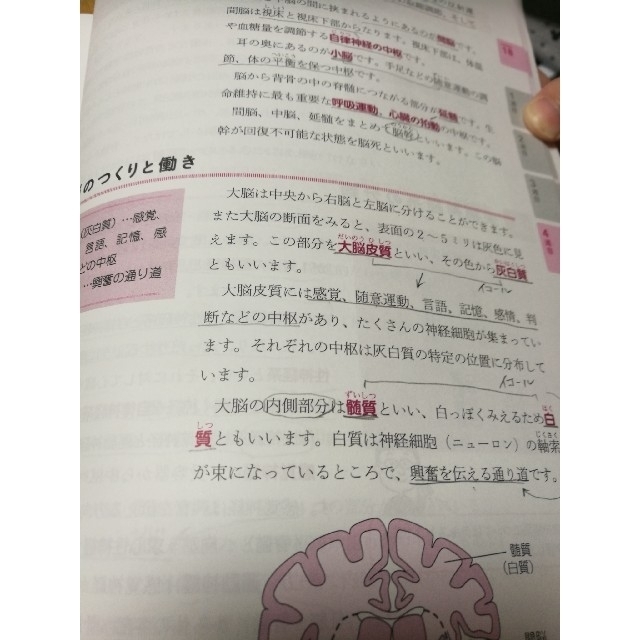 間脳は視床と視床下部からなります。視床下部は、体温
や血糖量を調節する自律神経の中枢です。
耳の奥にあるのが小脳です。手足などの随意運動の調
節、体の平衡を保つ中枢です。
脳から背骨の中の脊髄につながる部分が延髄です。生
命維持に最も重要な呼吸運動、心臓の拍動の中枢です。
間脳、中脳、延髄をまとめて脳幹といいます。この脳
幹が回復不可能な状態を脳死といいます。
のつくりと働き
(灰白質)…感覚、
言語、記憶、感
どの中枢
…興奮の通り道
大脳は中央から右脳と左脳に分けることができます。
また大脳の断面をみると、表面の2～5ミリは灰色に見
えます。この部分を大脳皮質といい、その色から灰白質
ともいいます。
イコール
大脳皮質には感覚、随意運動、言語、記憶、感情、判
断などの中枢があり、たくさんの神経細胞が集まってい
ます。それぞれの中枢は灰白質の特定の位置に分布して
います。
イコール
大脳の内側部分は髄質といい、白っぽくみえるため白
質ともいいます。白質は神経細胞（ニューロン）の軸索
が束になっているところで、興奮を伝える通り道です。
髄質
(白質)